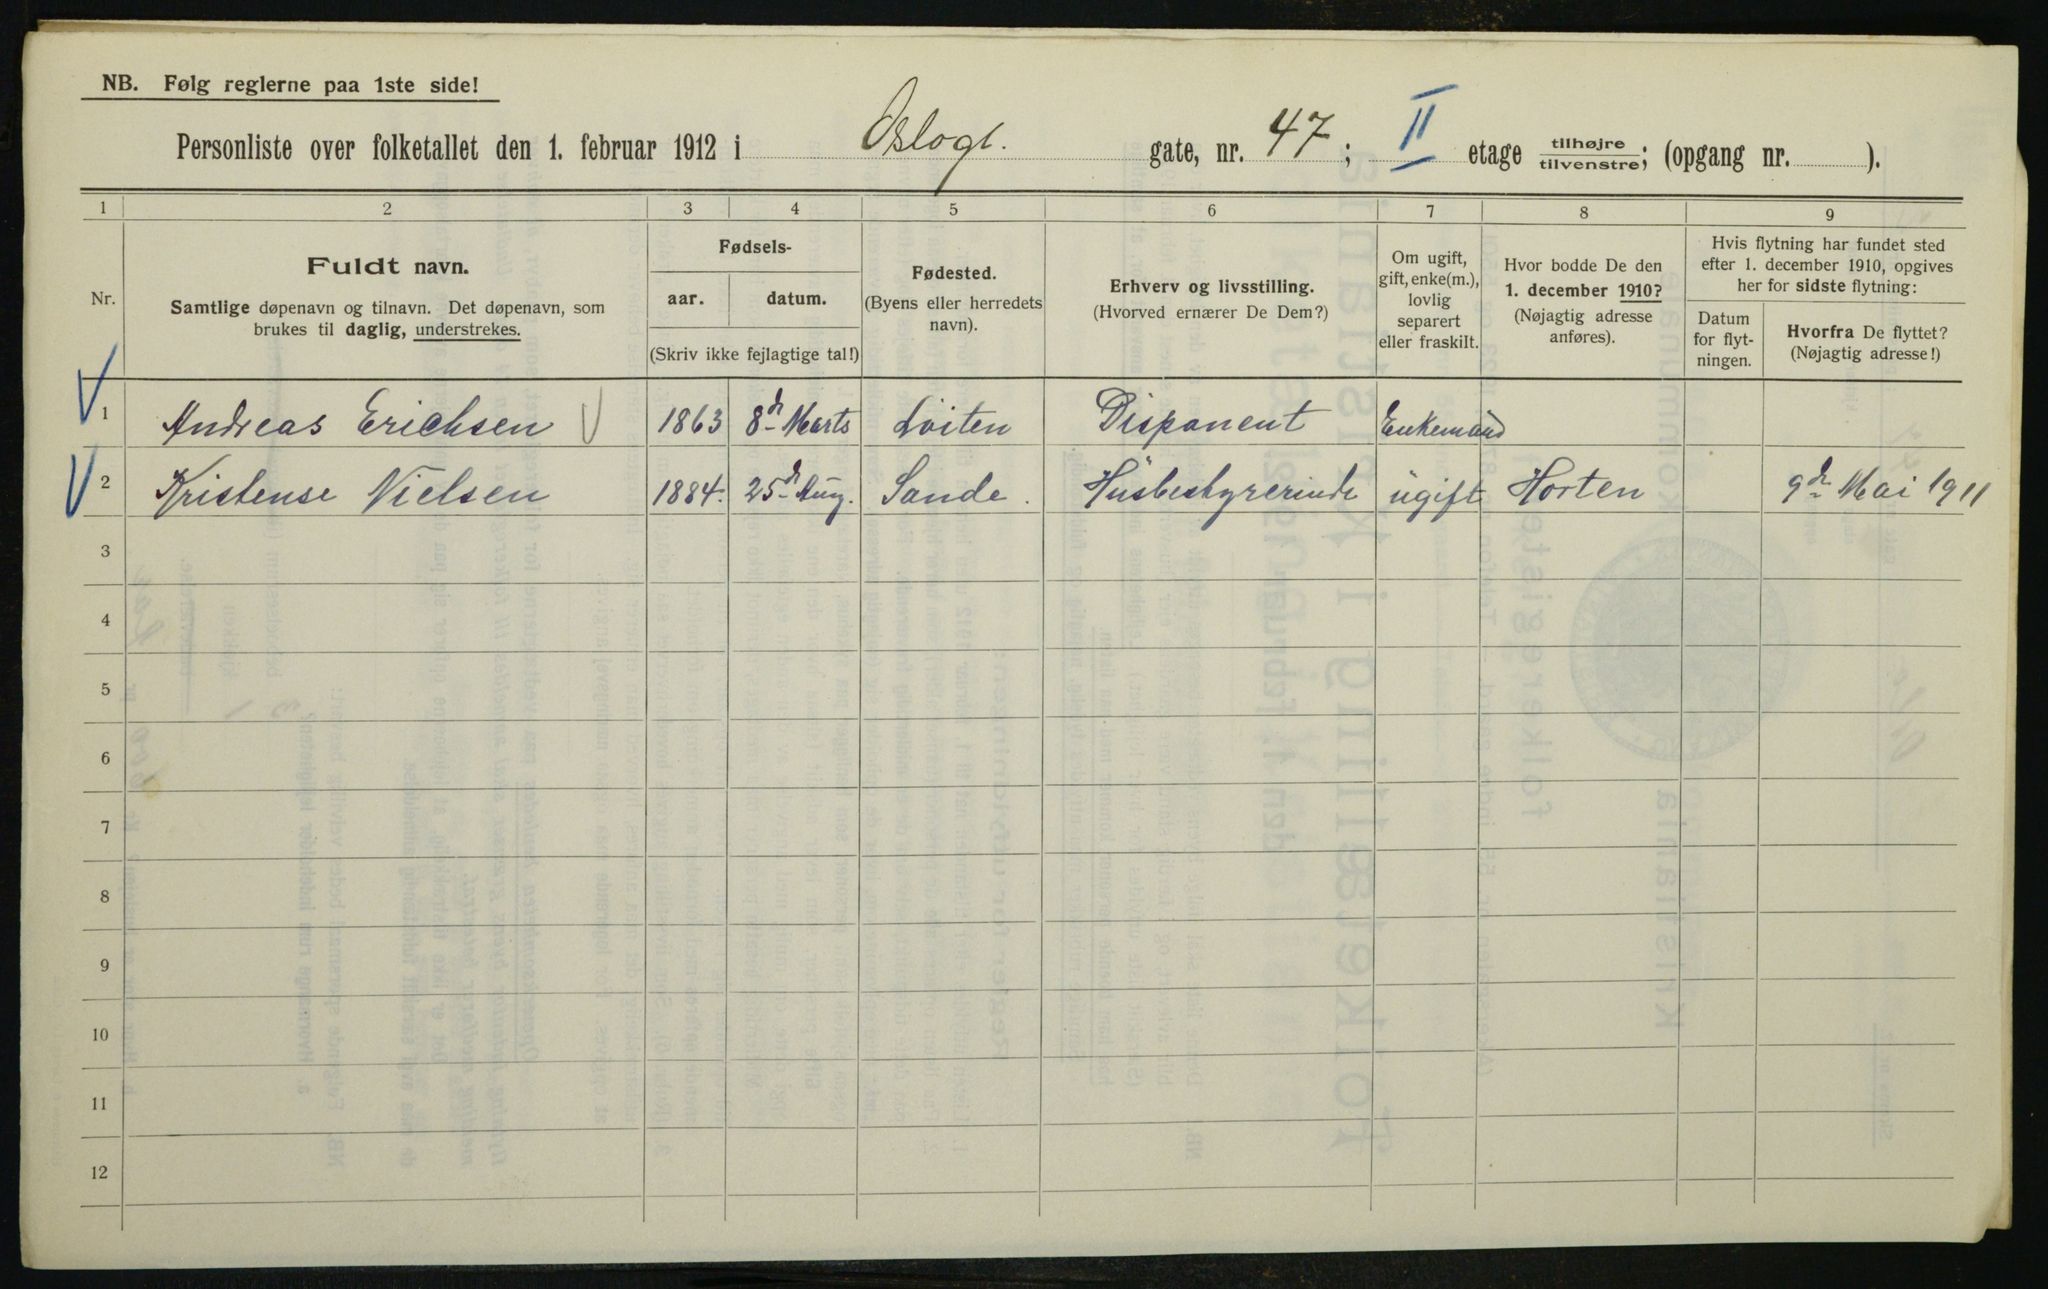 NB. Følg reglerne paa 1ste side!
Personliste over folketallet den 1. februar 1912 i Oslogt. gate, nr. 47; II etage tilhøjre/tilvenstre; (opgang nr. ).
1 2 3 4 5 6 7 8 9
Nr.
Fuldt navn.
Samtlige døpenavn og tilnavn. Det døpenavn, som
brukes til daglig, understrekes.
Fødsels-
aar. datum.
(Skriv ikke fejlagtige tal!)
Fødested.
(Byens eller herredets
navn).
Erhverv og livsstilling.
(Hvorved ernærer De Dem?)
Om ugift,
gift, enke(m.),
lovlig
separert
eller fraskilt.
Hvor bodde De den
1. december 1910?
(Nøjagtig adresse
anføres).
Hvis flytning har fundet sted
efter 1. december 1910, opgives
her for sidste flytning:
Datum
for flyt-
ningen.
Hvorfra De flyttet?
(Nøjagtig adresse!)
1 Andreas Erichsen 1863 8de Marts Löiten Disponent Enkemand
2 Kristense Nielsen 1884. 25de Aug. Sande. Husbestyrerinde ugift Horten 9de Mai 1911
3
4
5
6
7
8
9
10
11
12